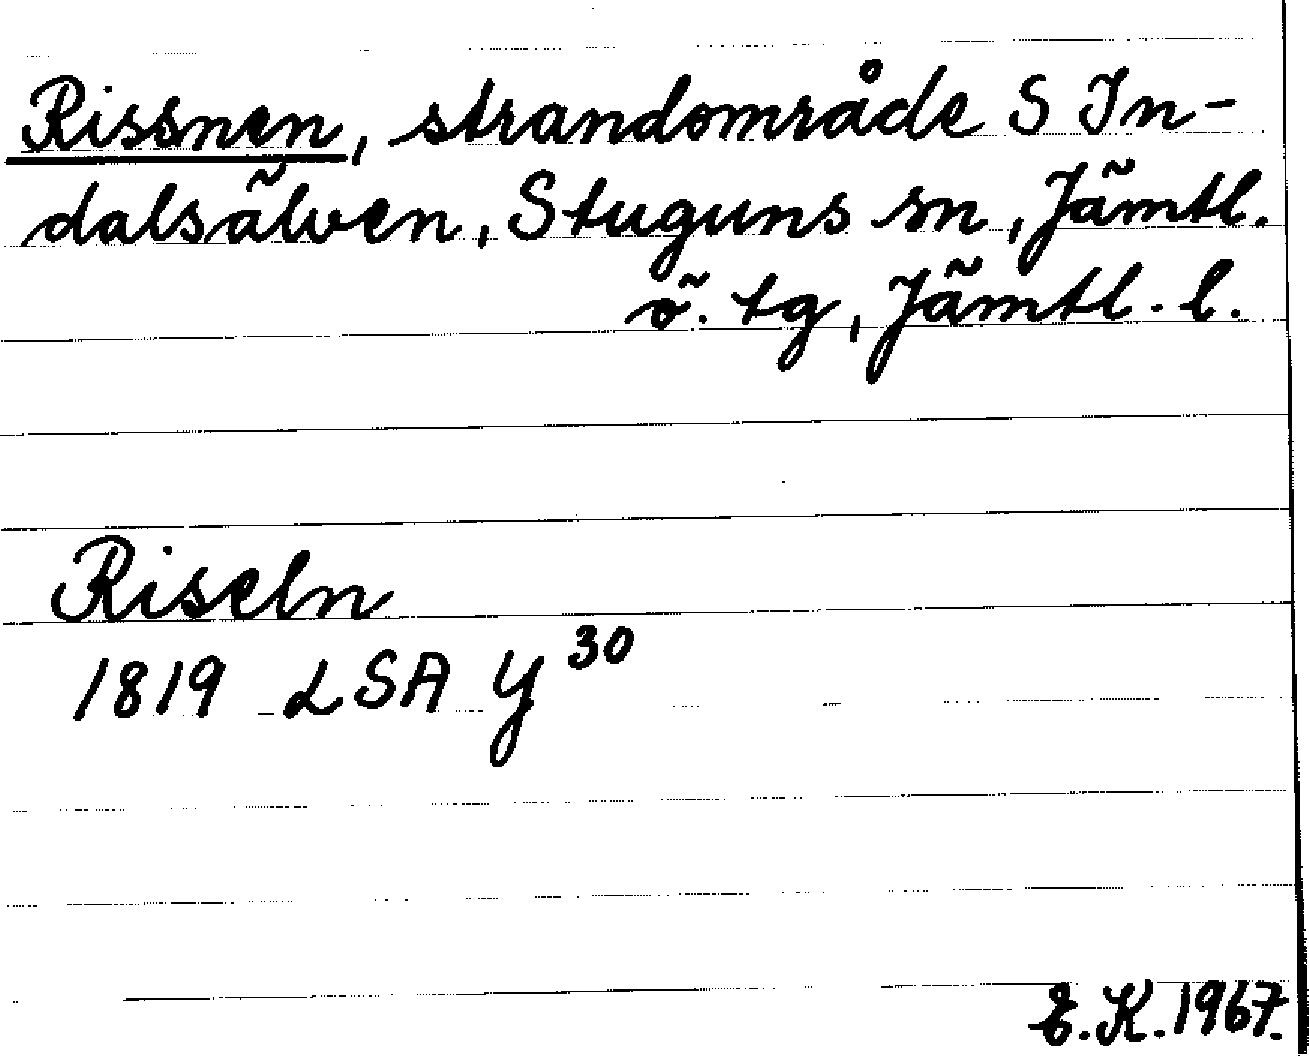 Rissnen, strandområde S In-
dalsälven, Stuguns sn, Jämtl.
ö. tg, Jämtl. l.
Riseln
1819 LSA Y 30
E.K. 1967.